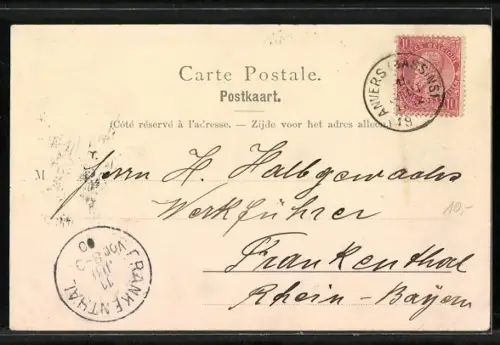 Carte Postale.
Postkaart.
(Côté réservé à l'adresse. — Zijde voor het adres alleen.)
10 10
ANVERS (BASSINS)
19
M
Herrn H. Halbgewachs
Werkführer
Frankenthal
Rhein-Bayern
10,-
FRANKENTHAL
11
JUL
VOR 8-9
00